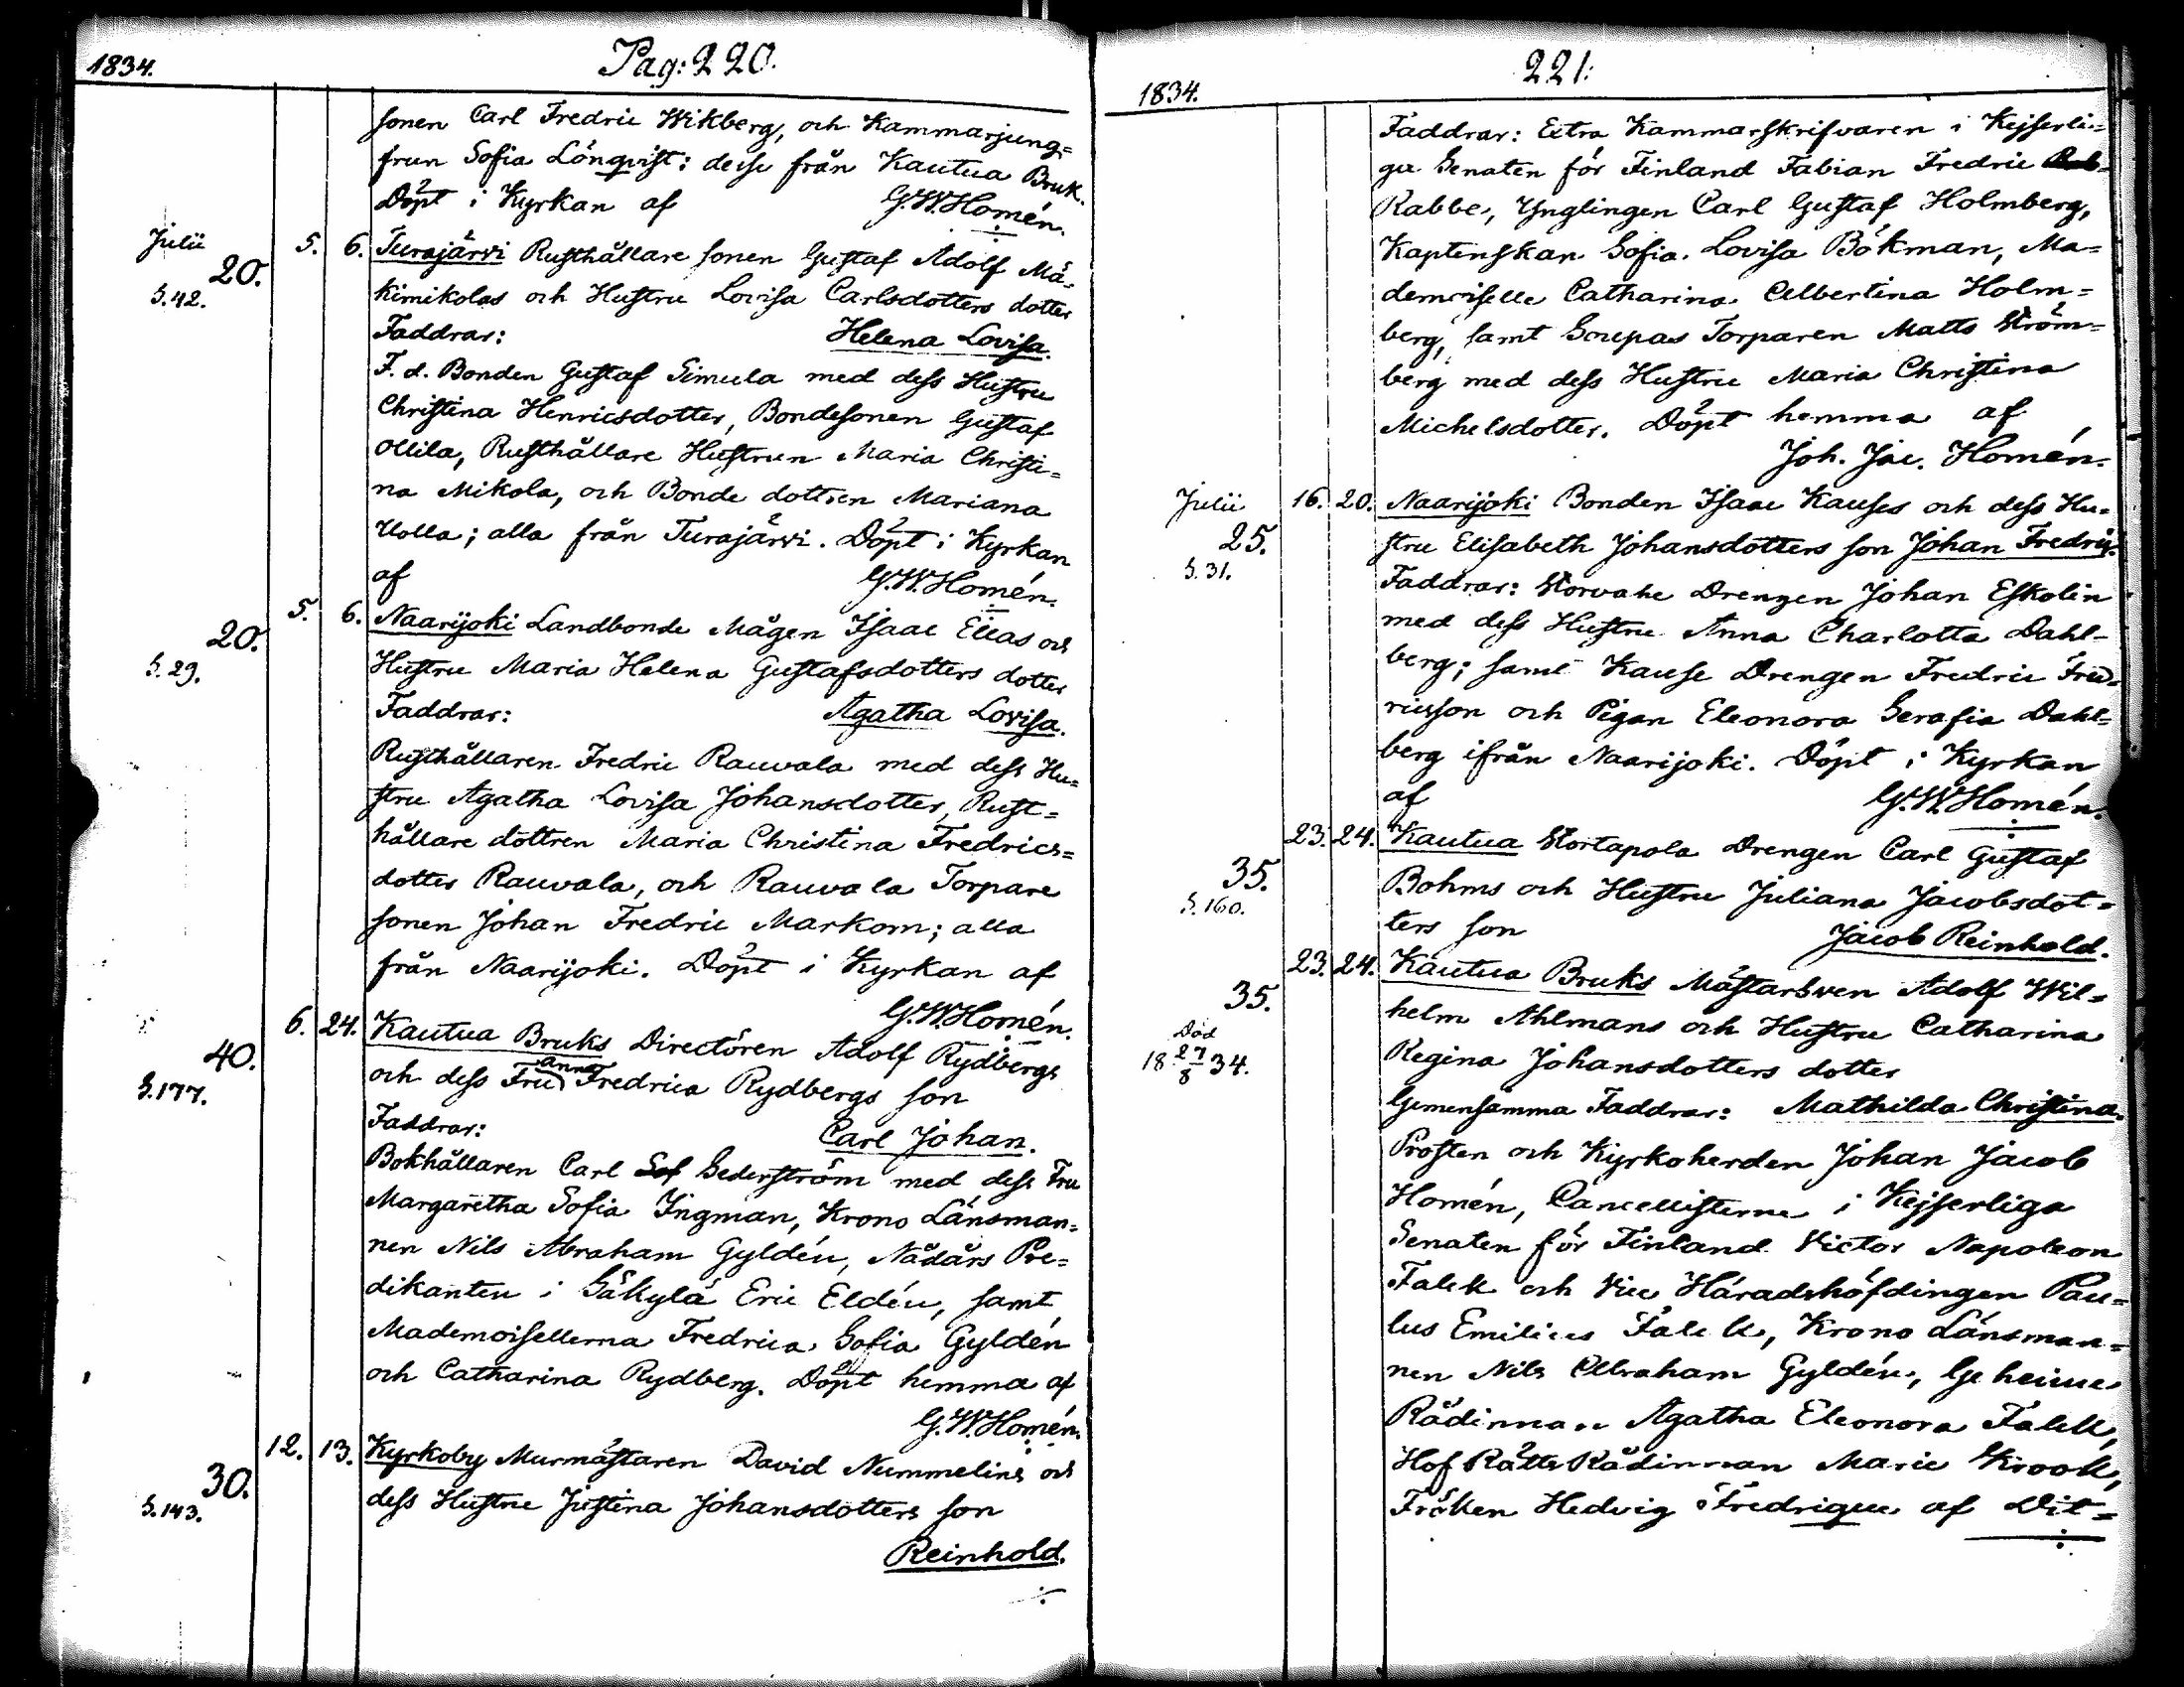 1834.
Pag: 220.
sonen Carl Fredric Wikberg, och Kammarjung=
frun Sofia Lönqvist: desse från Kautua Bruk.
Döpt i Kyrkan af G.W.Homén.
Julii 5. 6. Turajärvi Rusthållare sonen Gustaf Adolf Mä=
20.
S.42. kimikolas och Hustru Lovisa Carlsdotters dotter
Faddrar: Helena Lovisa.
F. d. Bonden Gustaf Simula med dess Hustru
Christina Henricsdotter, Bondesonen Gustaf
Ollila, Rusthållare Hustrun Maria Christi=
na Mikola, och Bonde dottren Mariana
Uolla; alla från Turajärvi. Döpt i Kyrkan
af G.W.Homén.
5. 6. Naarijoki Landbonde Mågen Isaac Elias och
20.
S.29. Hustru Maria Helena Gustafsdotters dotter
Faddrar: Agatha Lovisa.
Rusthållaren Fredric Rauvala med dess Hu=
stru Agatha Lovisa Johansdotter, Rust=
hållare dottren Maria Christina Fredrics=
dotter Rauvala, och Rauvala Torpare
sonen Johan Fredric Markom; alla
från Naarijoki. Döpt i Kyrkan af
G.W.Homén.
6. 24. Kautua Bruks Directören Adolf Rydbergs
40.
S.177. och dess Fru Anna Fredrica Rydbergs son
Faddrar: Carl Johan.
Bokhållaren Carl Sederström med dess Fru
Margaretha Sofia Ingman, Krono Länsman=
nen Nils Abraham Gyldén, Nådårs Pre=
dikanten i Säkylä Eric Eldén, samt
Mademoisellerna Fredrica Sofia Gyldén
och Catharina Rydberg. Döpt hemma af
G.W.Homén.
12. 13. Kyrkoby Murmästaren David Nummelins och
30.
S.143. dess Hustru Justina Johansdotters son
Reinhold.
1834.
221:
Faddrar: Extra Kammarskrifvaren i Kejserli=
ga Senaten för Finland Fabian Fredric
Rabbe, Ynglingen Carl Gustaf Holmberg,
Kaptenskan Sofia Lovisa Bökman, Ma=
demoiselle Catharina Albertina Holm=
berg, samt Torparen Matts Ström=
berg med dess Hustru Maria Christina
Michelsdotter. Döpt hemma af
Joh. Jac. Homén.
Julii 16. 20. Naarijoki Bonden Isaac Kauses och dess Hu=
25.
stru Elisabeth Johansdotters son Johan Fredric.
S.31.
Faddrar: Storvahe Drengen Johan Eskolin
med dess Hustru Anna Charlotta Dahl=
berg; samt Kause Drengen Fredric Fred=
ricsson och Pigan Eleonora Serafia Dahl=
berg ifrån Naarijoki. Döpt i Kyrkan
af G.W.Homén.
23. 24. Kautua Stortapola Drengen Carl Gustaf
35.
Bohms och Hustru Juliana Jacobsdot=
S.160.
ters son Jacob Reinhold.
23. 24. Kautua Bruks Mästarsven Adolf Wil=
35.
helm Ahlmans och Hustru Catharina
Död
18 27/8 34. Regina Johansdotters dotter
Gemensamma Faddrar: Mathilda Christina.
Prosten och Kyrkoherden Johan Jacob
Homén, Cancellisterne i Kejserliga
Senaten för Finland Victor Napoleon
Falck och Vice Häradshöfdingen Pau=
lus Emilius Falck, Krono Länsman=
nen Nils Abraham Gyldén, Geheime
Rådinnan Agatha Eleonora Falck,
Hof Rätts Rådinnan Marie Krook,
Fröken Hedvig Fredrique af Dit=